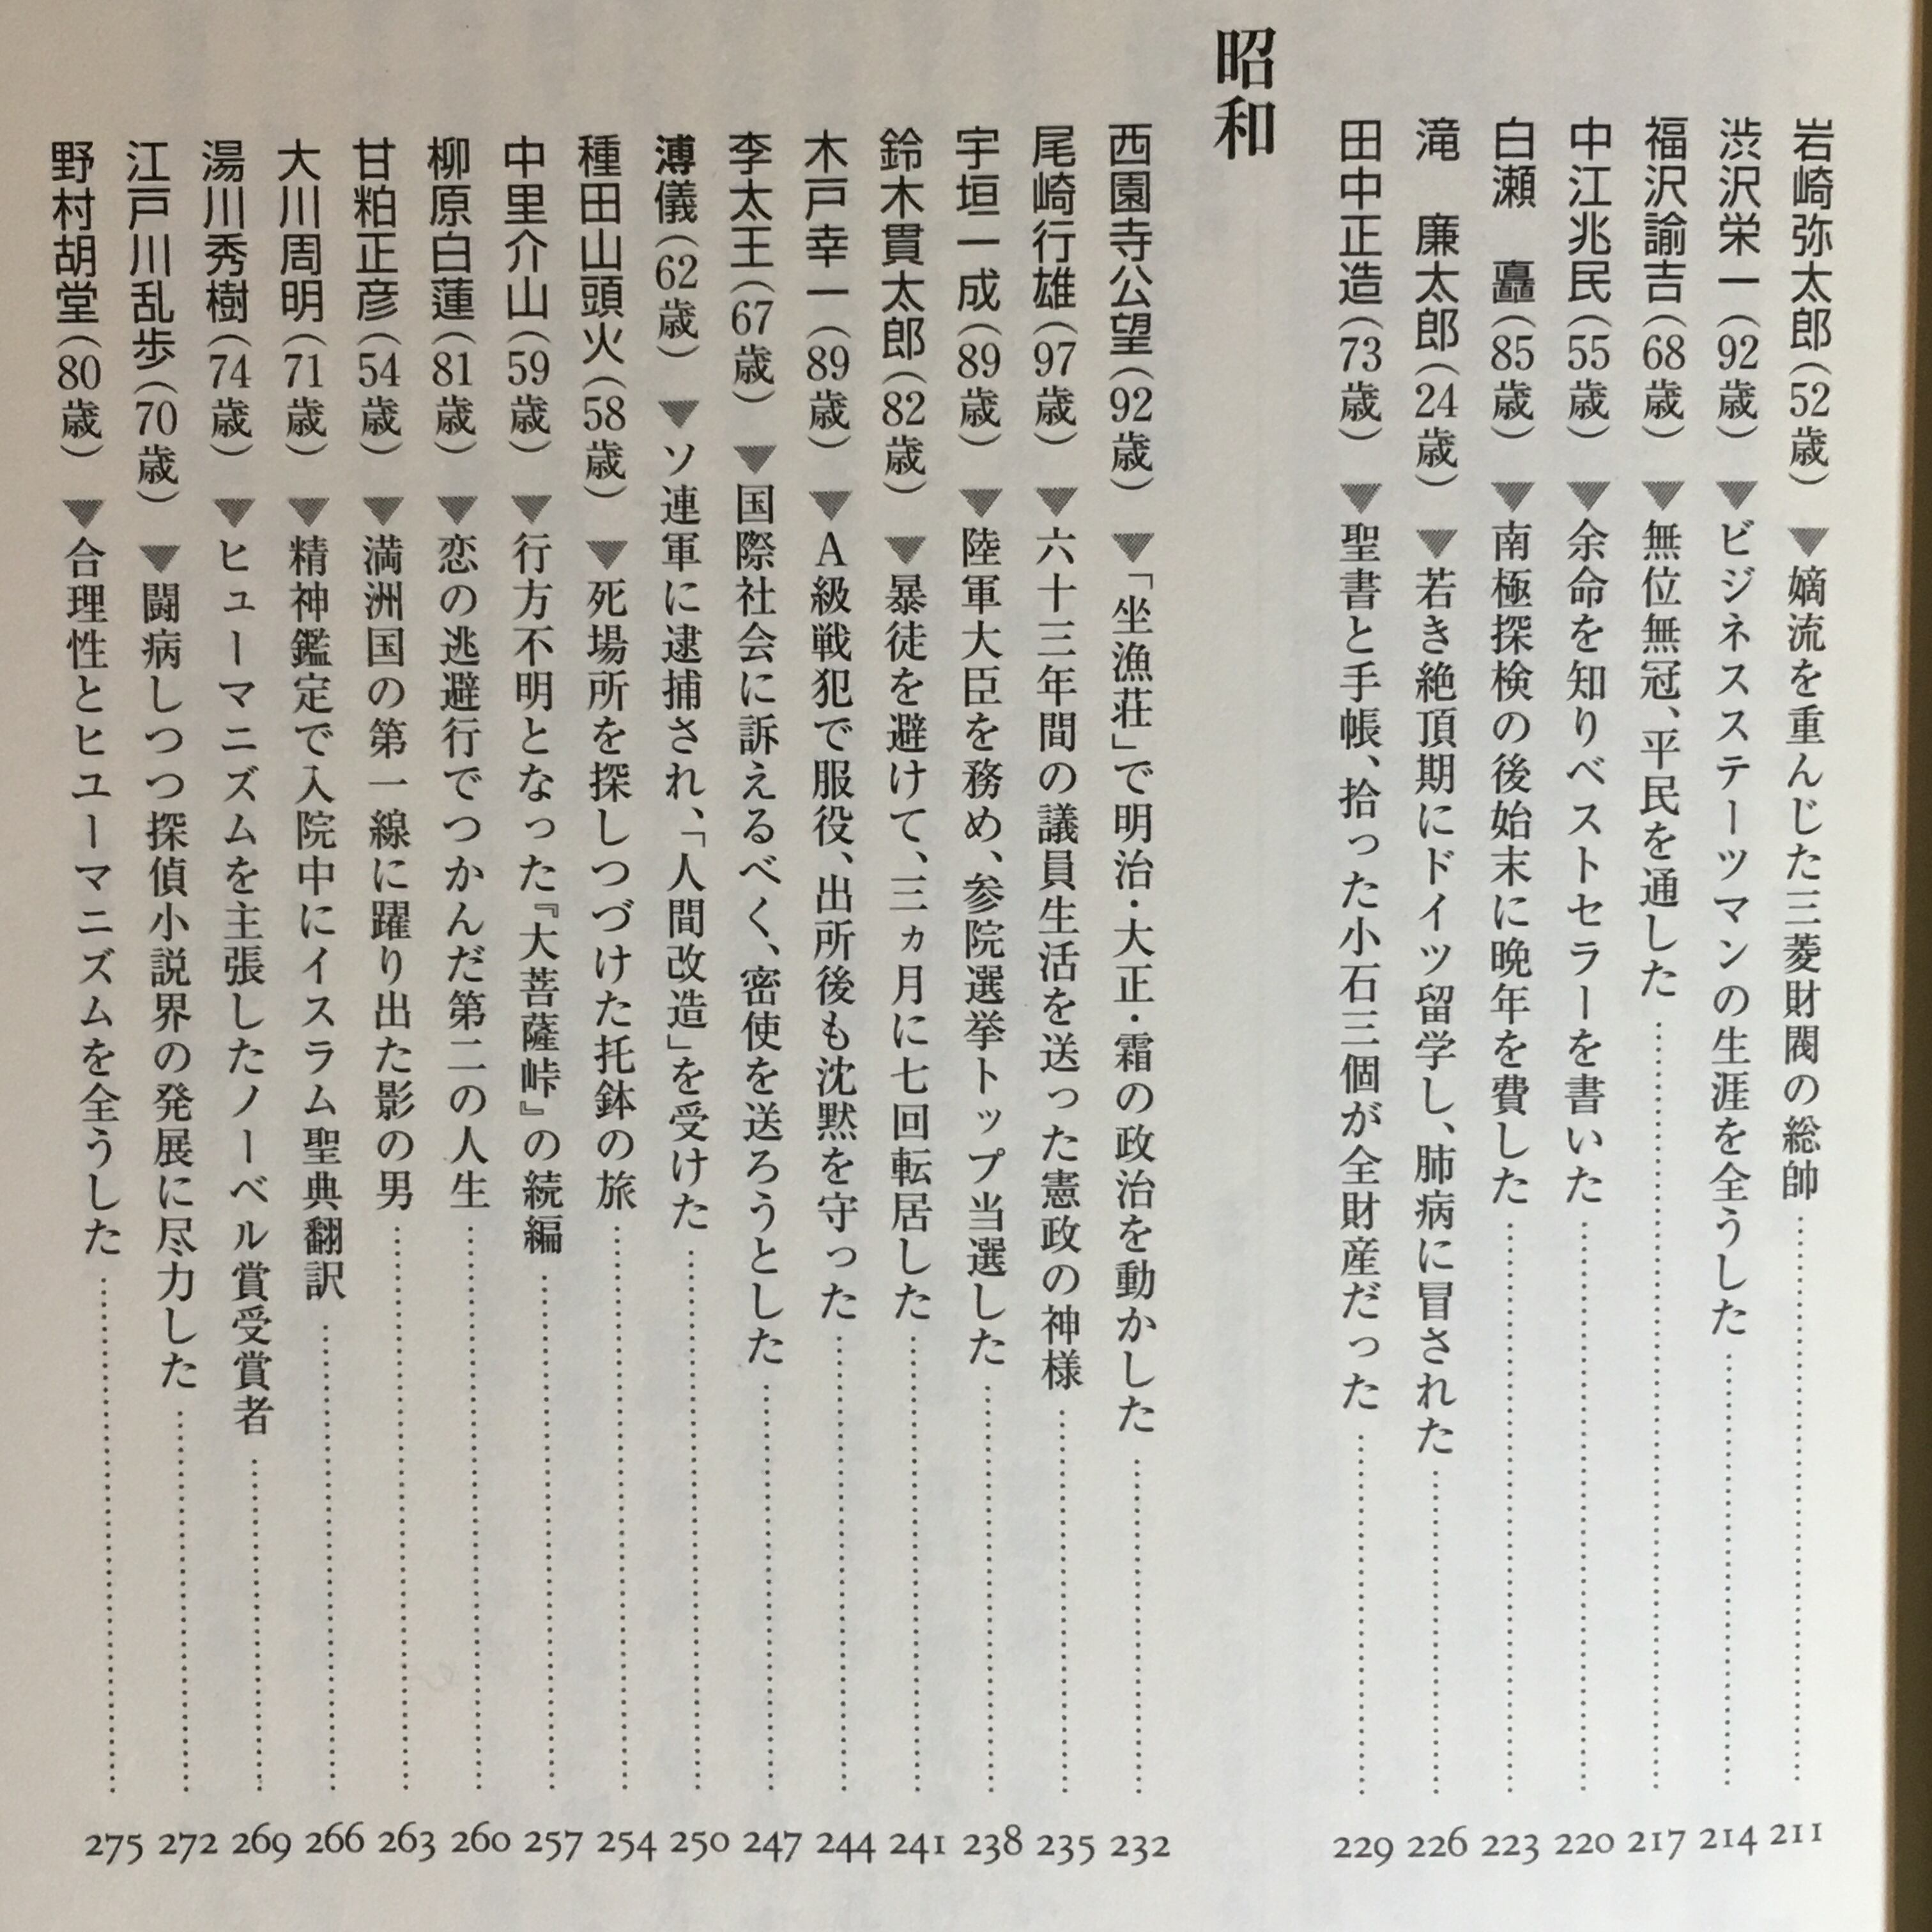 岩崎弥太郎(52歳) ▼嫡流を重んじた三菱財閥の総帥……211
渋沢栄一(92歳) ▼ビジネスステーツマンの生涯を全うした……214
福沢諭吉(68歳) ▼無位無冠、平民を通した……217
中江兆民(55歳) ▼余命を知りベストセラーを書いた……220
白瀬 矗(85歳) ▼南極探検の後始末に晩年を費した……223
滝 廉太郎(24歳) ▼若き絶頂期にドイツ留学し、肺病に冒された……226
田中正造(73歳) ▼聖書と手帳、拾った小石三個が全財産だった……229
昭和
西園寺公望(92歳) ▼「坐漁荘」で明治・大正・霜の政治を動かした……232
尾崎行雄(97歳) ▼六十三年間の議員生活を送った憲政の神様……235
宇垣一成(89歳) ▼陸軍大臣を務め、参院選挙トップ当選した……238
鈴木貫太郎(82歳) ▼暴徒を避けて、三ヵ月に七回転居した……241
木戸幸一(89歳) ▼A級戦犯で服役、出所後も沈黙を守った……244
李太王(67歳) ▼国際社会に訴えるべく、密使を送ろうとした……247
溥儀(62歳) ▼ソ連軍に逮捕され、「人間改造」を受けた……250
種田山頭火(58歳) ▼死場所を探しつづけた托鉢の旅……254
中里介山(59歳) ▼行方不明となった『大菩薩峠』の続編……257
柳原白蓮(81歳) ▼恋の逃避行でつかんだ第二の人生……260
甘粕正彦(54歳) ▼満洲国の第一線に躍り出た影の男……263
大川周明(71歳) ▼精神鑑定で入院中にイスラム聖典翻訳……266
湯川秀樹(74歳) ▼ヒューマニズムを主張したノーベル賞受賞者……269
江戸川乱歩(70歳) ▼闘病しつつ探偵小説界の発展に尽力した……272
野村胡堂(80歳) ▼合理性とヒユーマニズムを全うした……275